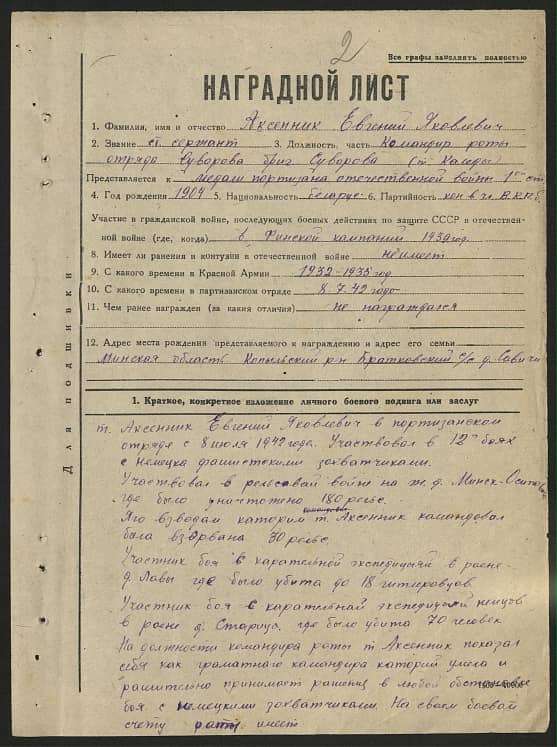 2
Все графы заполнять полностью
НАГРАДНОЙ ЛИСТ
1. Фамилия, имя и отчество Аксенник Евгений Яковлевич
2. Звание ст. сержант 3. Должность, часть Командир роты
отряда Суворова бриг Суворова (т. Капсды)
Представляется к медали партизана отечественной войны 1ой ст
4. Год рождения 1904 5. Национальность беларус 6. Партийность кан в чл В.К.П.б.
Участие в гражданской войне, последующих боевых действиях по защите СССР и отечествен-
ной войне (где, когда) в Финской кампаний 1939 год.
8. Имеет ли ранения и контузии в отечественной войне неимеет
9. С какого времени в Красной Армии 1932-1935 год
10. С какого времени в партизанском отряде 8.7.42 года
11. Чем ранее награжден (за какия отличия) не награждался
12. Адрес места рождения представляемого к награждению и адрес его семьи
Минская область Копыльский р-н Братковский с/с д. Савичи
Для подшивки
1. Краткое, конкретное изложение личного боевого подвига или заслуг
т. Аксенник Евгений Яковлевич в портизанском
отряде с 8 июля 1942 года. Участвовал в 12ти боях
с немецка фашистскими захватчиками.
Участвовал в рельсавай войне на ж.д. Минск-
где было уничтожено 180 рельс.
Яго взводам каторим т. Аксенник командовал
была взарвана 30 рельс.
Участник боя с карательной экспедицией в раене
д. Лавы где было убита до 18 гитлеровцов
Участник боя с карательнай экспедицыей немцов
в раене д. Старица, где было убита 70 человек
На должности командира роты т Аксенник показал
себя как граматнаго камандира каторий умела и
рашительно принимает рашения в любой обстановке
боя с немецкими захватчиками. На своем боевом
счету рота имеет